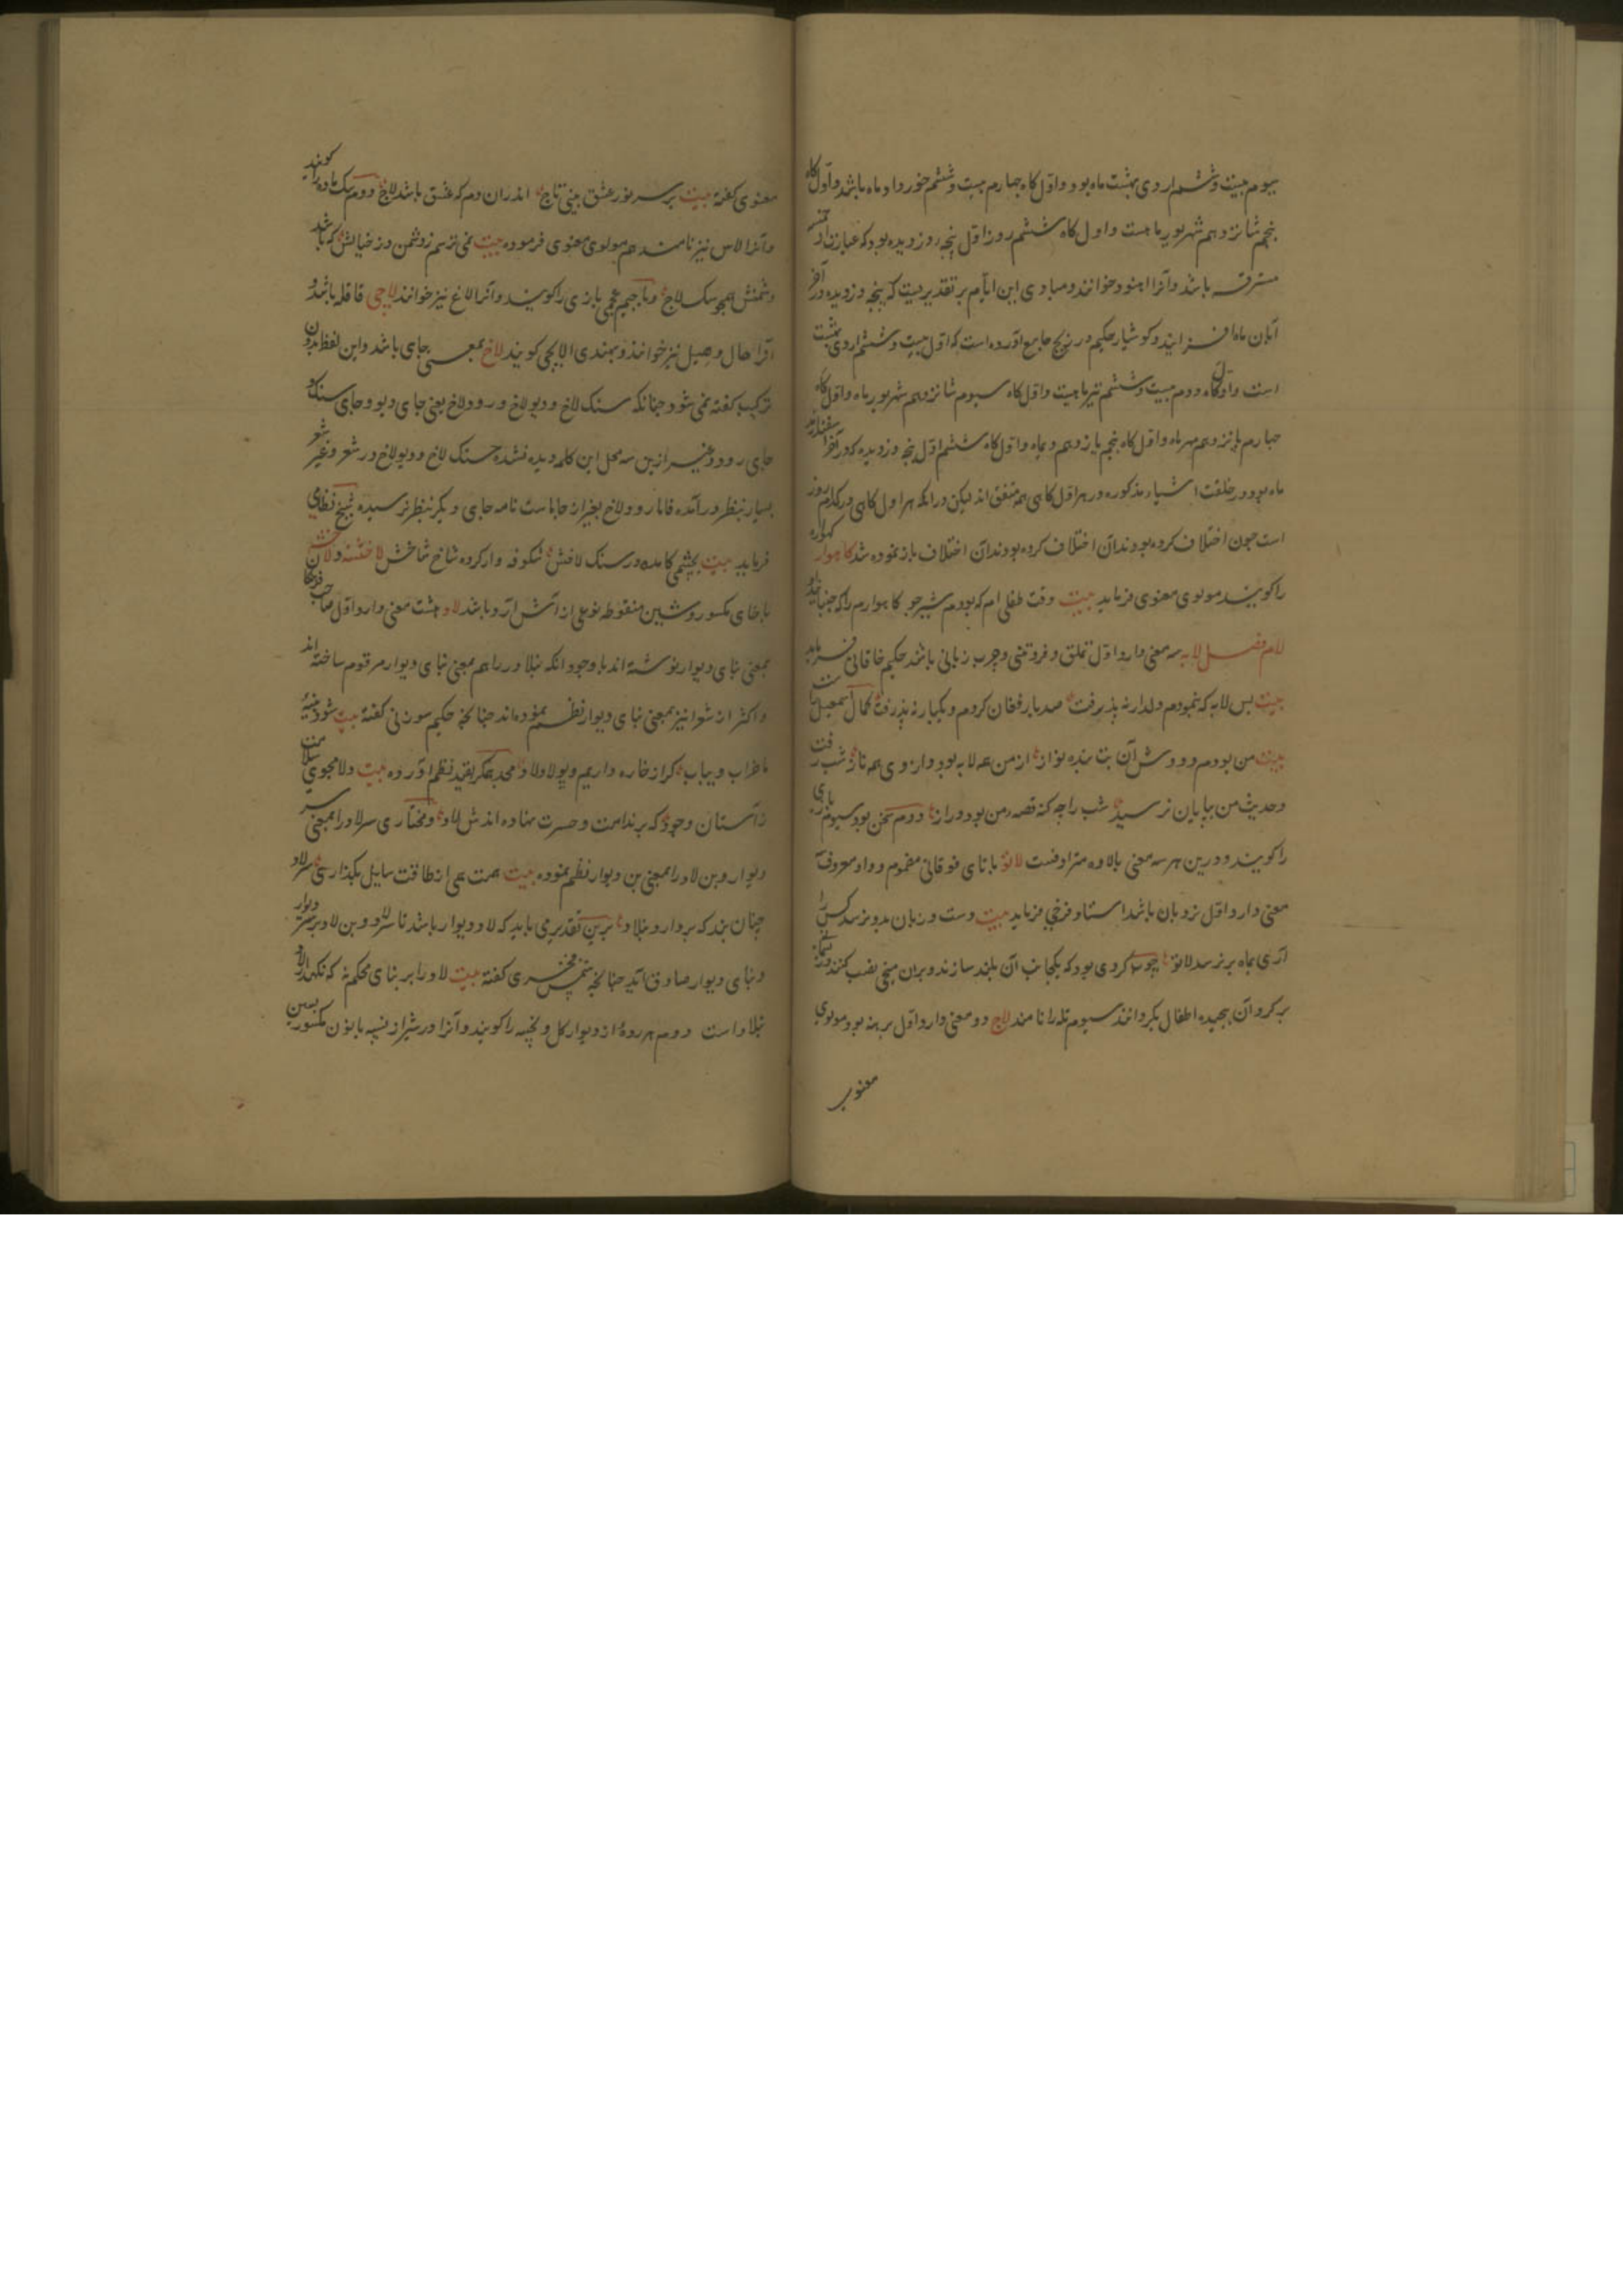 سیوم بیست وششم اردی بهشت ماه بود واول کاه چهارم بیست وششم خورداد ماه باشد واول کاه
پنجم شانزدهم شهریور ماهست واول کاه ششم روز اول پنجه دزدیده بود که عبارت از خمسه
مسترقه باشد وآنرا اهنود خوانند ومبادی این ایام بر تقدیریست که پنجه دزدیده در آخر
آبان ماه افزایند وکوشیار حکیم در زیج جامع آورده است که اول بیست وششم اردی بهشت
است واول کاه دوم بیست وششم تیر ماهست واول کاه سیوم شانزدهم شهریور ماه واول کاه
چهارم پانزدهم مهر ماه واول کاه پنجم یازدهم دیماه واول کاه ششم اول پنجه دزدیده که در آخر اسفندارمذ
ماه بود ودر خلقت اشیاء مذکوره در هر اول کاهی همه متفق اند لیکن در انکه هر اول کاهی در کدام روز
است چون اختلاف کرده بودند آن اختلاف باز نموده شد کاهوار کهواره
را کویند مولوی معنوی فرماید بیت وقت طفلی ام که بودم شیر جو کاهوارم را که جنبانید او
لام فصل لابه سه معنی دارد اول تملق و فروتنی وچرب زبانی باشد حکیم خاقانی فرماید
بیت بس لابه که بنمودم ودلدار نپذیرفت صد بار فغان کردم ویکبار نپذیرفت کمال اسمعیل راست
بیت من بودم ودوش آن بت بنده نواز از من همه لابه بود وازوی همه ناز شب رفت
وحدیث من بپایان نرسید شب را چه کنه قصه من بود دراز دوم سخن بود سیوم بازی
را کویند ودرین هر سه معنی بالاوه مترادفست لاتو با تای فوقانی مضموم وواو معروف سه
معنی دارد اول نردبان باشد استاد فرخی فرماید بیت دست وزبان بدو نرسد کس را
آری بماه بر نرسد لاتو دوم چوب کردی بود که یکجانب آن بلند سازند وبران میخی نصب کنند
بر کرد آن پیچیده اطفال بکردانند سیوم تله را نامند لاج دو معنی دارد اول برهنه بود مولوی
معنوی
معنوی کفته بیت بر سر نور عشق بینی تاج اندران دم که عشق باشد لاج دوم سک ماده را کویند
وآنرا لاس نیز نامند هم مولوی معنوی فرموده بیت نمی ترسم ز دشمن وز خیالش که باشد
دشمنش همچو سک لاج وبا جیم عجمی بازی را کویند وآنرا لاغ نیز خوانند لاچی قاقله باشد و
آنرا هال وهیل نیز خوانند وبهندی الایچی کویند لاخ بمعنی جای باشد واین لفظ بدون
ترکیب کفته نمی شود چنانکه سنک لاخ ودیولاخ ورودلاخ یعنی جای دیو وجای سنک و
جای رود وغیر ازین سه محل این کلمه دیده نشده سنک لاخ ودیولاخ در شعر وغیر شعر
بسیار بنظر در آمده فاما رودلاخ بغیر از جاماسب نامه جای دیکر بنظر نرسیده شیخ نظامی
فرماید بیت بچشمی کامده در سنک لاخش شکوفه وار کرده شاخ شاخش لاخشته ولاخشه
با خای مکسور وشین منقوطه نوعی از آش آرد باشد لاد هشت معنی دارد اول صاحب فرهنکها
بمعنی بنای دیوار نوشته اند با وجود انکه بنلاد را هم بمعنی بنای دیوار مرقوم ساخته اند
واکثر از شعرا نیز بمعنی بنای دیوار نظم نموده اند چنانچه حکیم سوزنی کفته بیت شود زهیبت
ما خراب ویباب کر از خاره داریم وپولاد لاد مجد همکر بقید نظم آورده بیت دلا مجوی سلامت
ز آستان وجود که بر ندامت وحسرت نهاده اندش لاد ومختاری سرلاد را بمعنی سر
دیوار وبن لاد را بمعنی بن دیوار نظم نموده بیت همت عی از طاقت سایل بکذارستی سرلاد
چنان بند که بردارد بنلاد برین تقدیر می باید که لاد دیوار باشد تا سرلاد وبن لاد بر سر دیوار
وبنای دیوار صادق آید چنانچه شمس فخری کفته بیت لاد را بر بنای محکم نه که نکهدار لاد
بنلاد است دوم هر رده از دیوار کل وپخسه را کویند وآنرا در شیراز نسپه با نون مکسور وسین